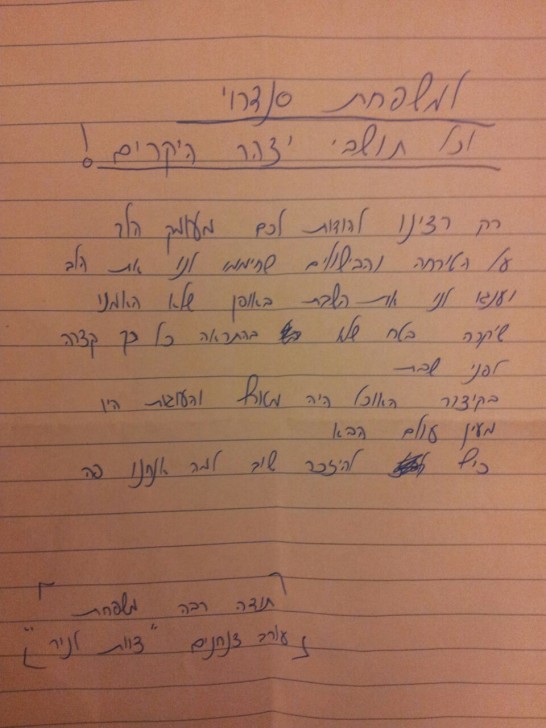 למשפחת סנדרוי
וכל תושבי יצהר היקרים!
רק רצינו להודות לכם מעומק הלב
על הטירחה והבישולים שחיממו לנו את הלב
וענגו לנו את השבת באופן שלא האמנו
שיקרה בטח שלא בהתראה כל כך קצרה
לפני שבת
בקיצור האוכל היה מטורף והעוגות היו
מעין עולם הבא
כיף להיזכר שוב למה אנחנו פה
תודה רבה משפחת
עורב צנחנים "צוות לניר"